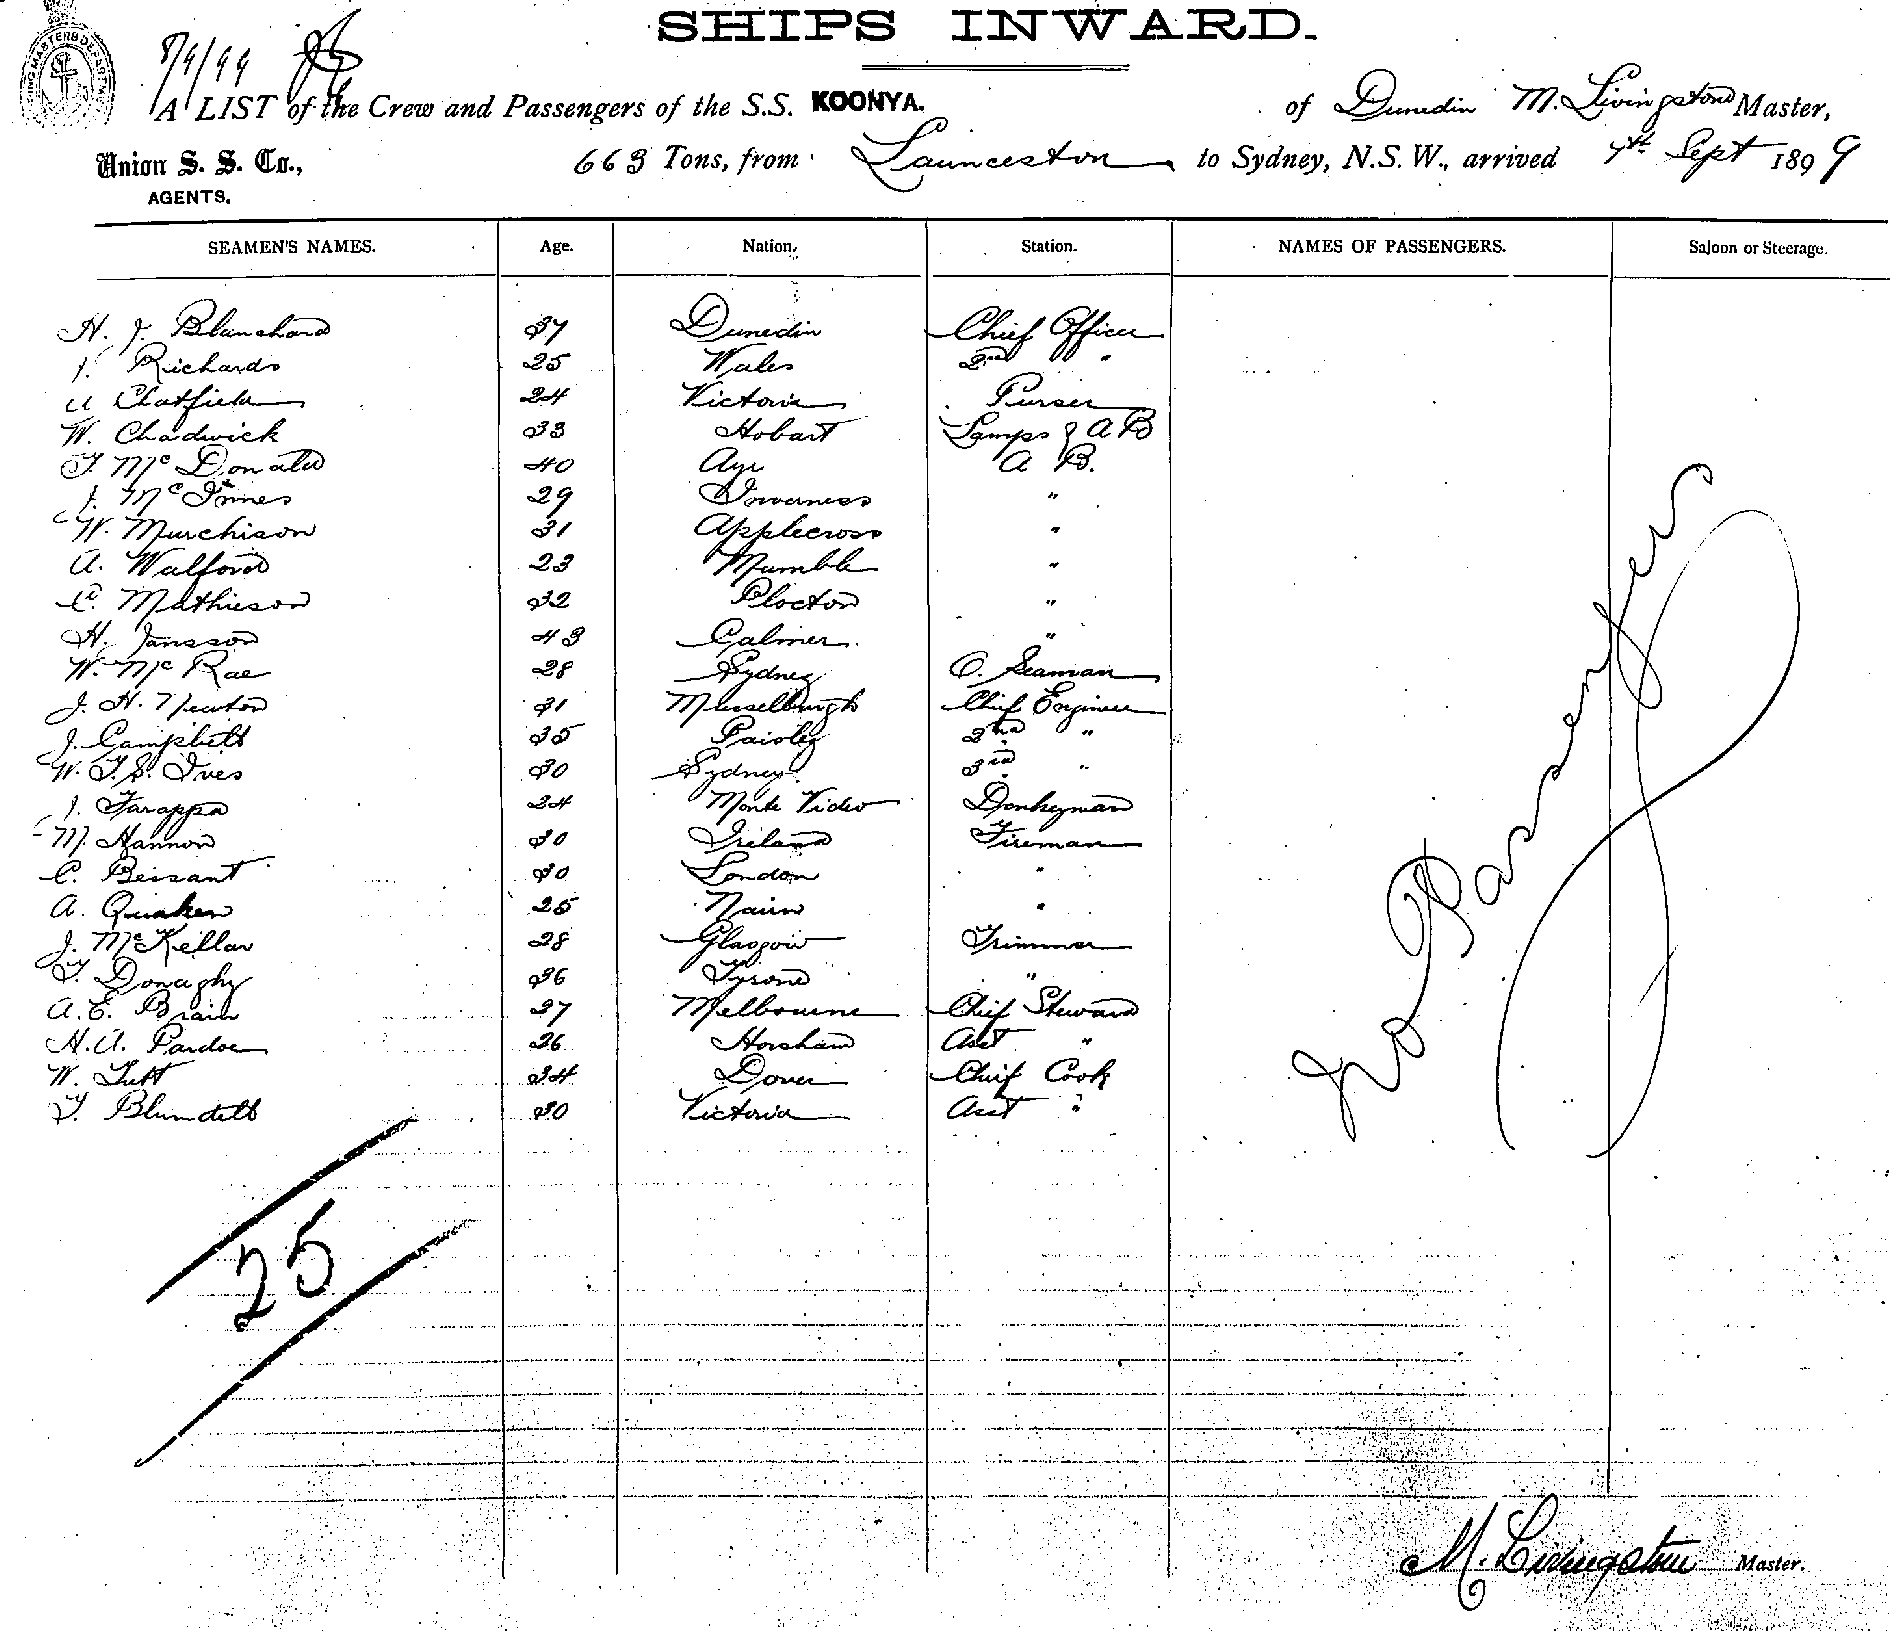 SHIPS INWARD.
8/9/99
A LIST of the Crew and Passengers of the S.S. KOONYA. of Dunedin M. Livingstone Master,
Union S. S. Co., 663 Tons, from Launceston to Sydney, N.S.W., arrived 7th Sept 1899
AGENTS.
SEAMEN'S NAMES. Age. Nation. Station. NAMES OF PASSENGERS. Saloon or Steerage.
H. J. Blanchard 37 Dunedin Chief Officer
J. Richards 25 Wales 2nd "
A Chatfield 24 Victoria Purser
W. Chadwick 33 Hobart Lamps & AB
T. McDonald 40 Ayr A B.
J. McInnes 29 Inverness "
W. Murchison 31 Applecross "
A. Walford 23 Mumble "
C. Mathieson 32 Plocton "
H. Jansson 43 Calmer. "
W. McRae 28 Sydney O. Seaman
J. H. Newton 31 Musselburgh Chief Engineer
J. Campbell 35 Paisley 2nd "
W. T. S. Ives 30 Sydney 3rd "
J. Farappa 24 Monte Video Donkeyman
M. Hannon 30 Ireland Fireman
C. Beisant 30 London "
A. Quaken 25 Nairn "
J. McKellar 28 Glasgow Trimmer
T. Donaghy 36 Tyrone "
A. E. Brain 27 Melbourne Chief Steward
H. A. Pardoe 26 Horsham Asst "
W. Tutt 34 Dover Chief Cook
T. Blundell 30 Victoria Asst "
No Passengers
25
M. Livingstone Master.